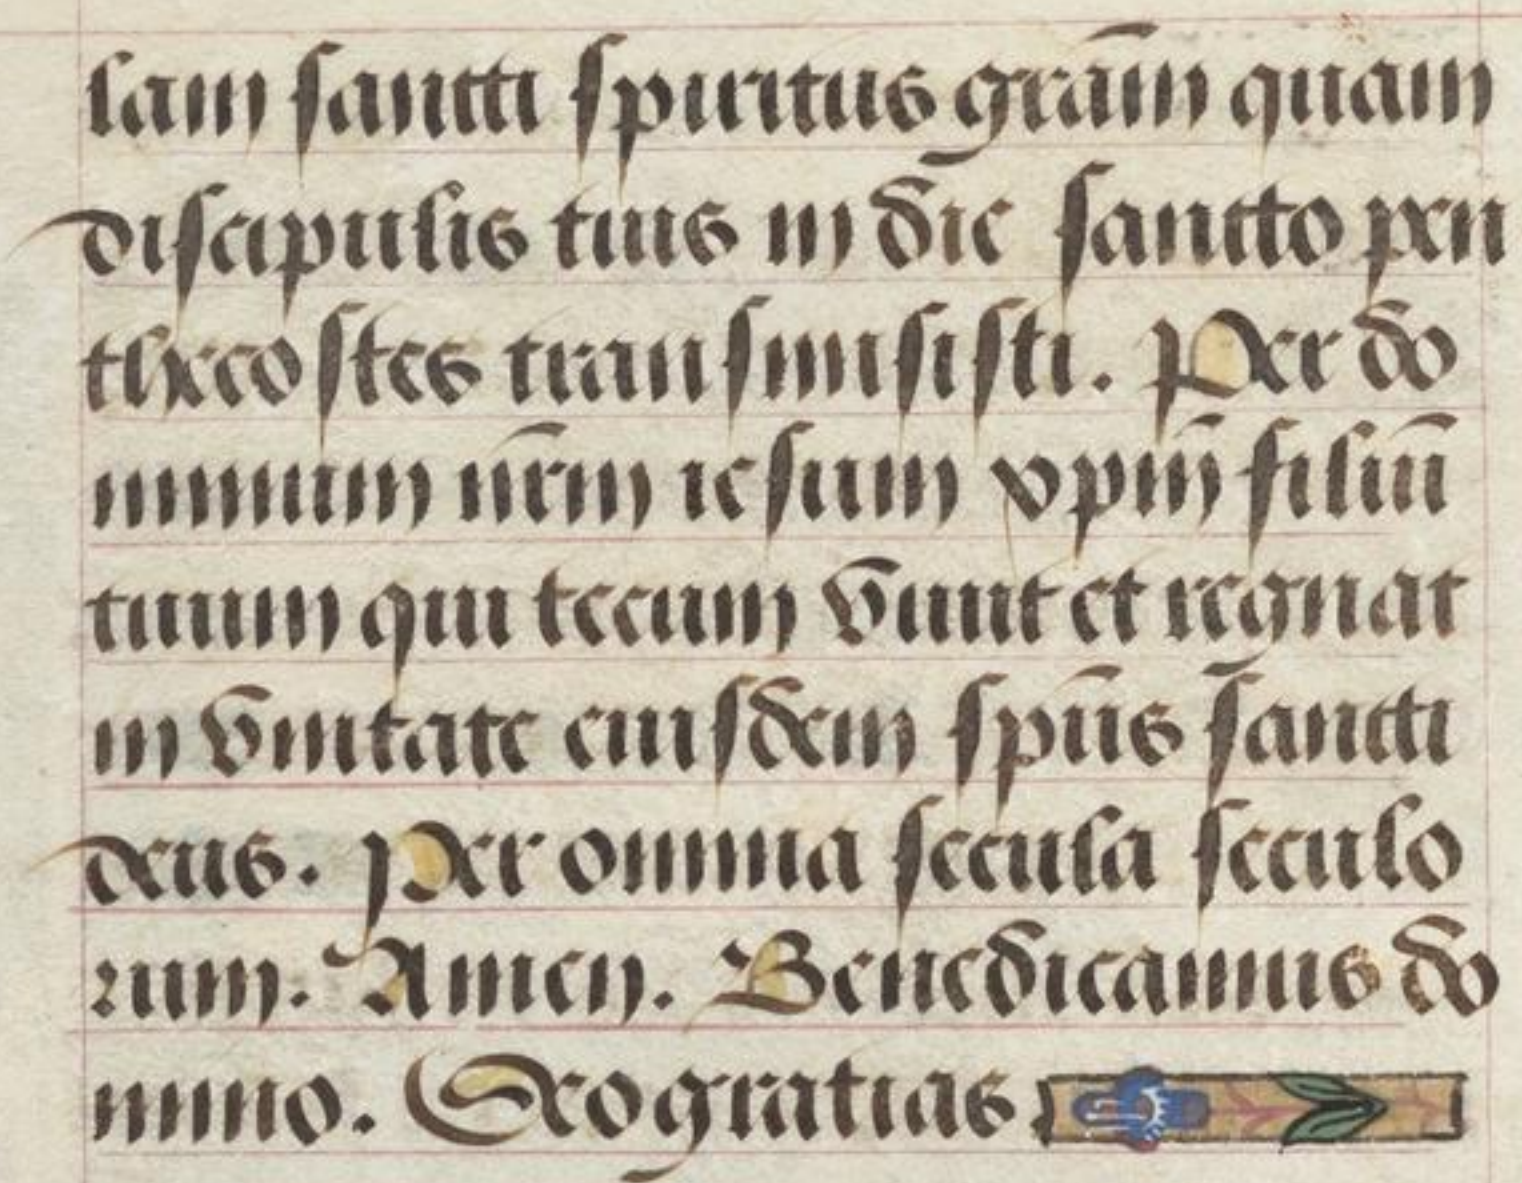 lam sancti spiritus grām quam
discipulis tuis in die sancto pen
thecostes transmisisti. Per do
minum nr̄m iesum xp̄m filiū
tuum qui tecum viuit et regnat
in vnitate eiusdem sp̄us sancti
deus. Per omnia secula seculo
rum. Amen. Benedicamus do
mino. Deo gratias.